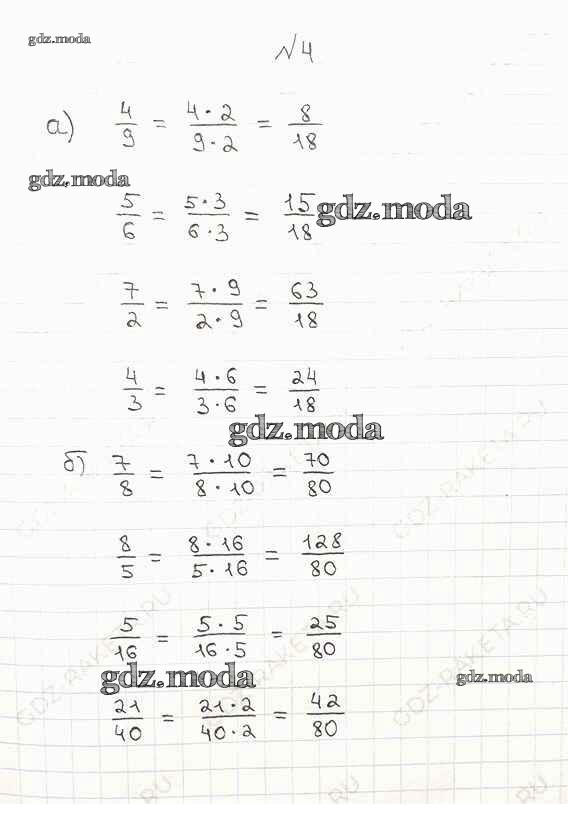 gdz.moda
№4
а) 4/9 = 4·2/9·2 = 8/18
gdz.moda
5/6 = 5·3/6·3 = 15/18 gdz.moda
7/2 = 7·9/2·9 = 63/18
4/3 = 4·6/3·6 = 24/18
gdz.moda
б) 7/8 = 7·10/8·10 = 70/80
8/5 = 8·16/5·16 = 128/80
5/16 = 5·5/16·5 = 25/80
gdz.moda gdz.moda
21/40 = 21·2/40·2 = 42/80
GDZ-RAKETA.RU
GDZ-RAKETA.RU
GDZ-RAKETA.RU